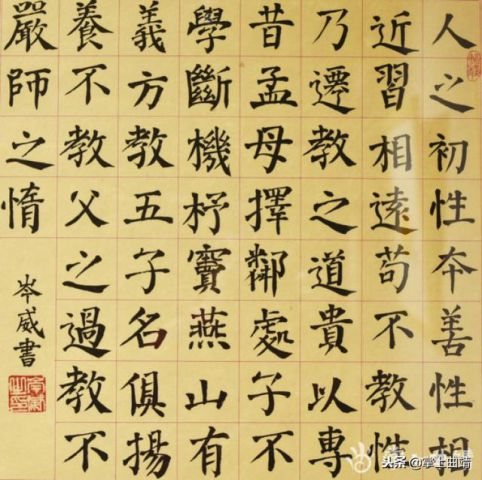 人之初性本善性相
近習相遠苟不教性
乃遷教之道貴以專
昔孟母擇鄰處子不
學斷機杼竇燕山有
義方教五子名俱揚
養不教父之過教不
嚴師之惰
岑威書
头条@掌上曲靖